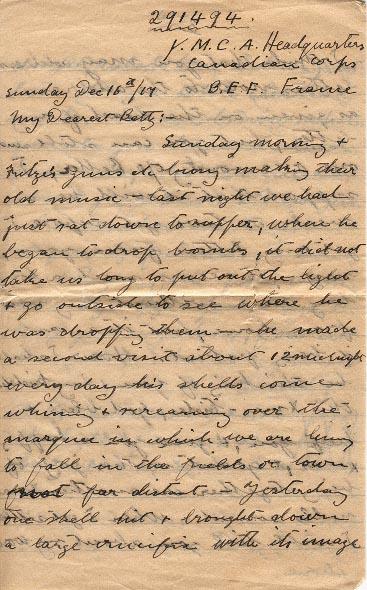 291494.
Y.M.C.A. Headquarters
Canadian Corps
Sunday Dec 16th/17 B.E.F. France
My Dearest Betty:-
Sunday morning +
Fritze's guns etc busy making their
old music - last night we had
just sat down to supper, when he
began to drop bombs, it did not
take us long to put out the light
+ go outside to see where he
was dropping them - he made
a second visit about 12 midnight
every day his shells come
whining + screaming over the
marquee in which we are living
to fall in the fields or town,
not far distant. Yesterday
one shell hit + brought down
a large crucifix with its image